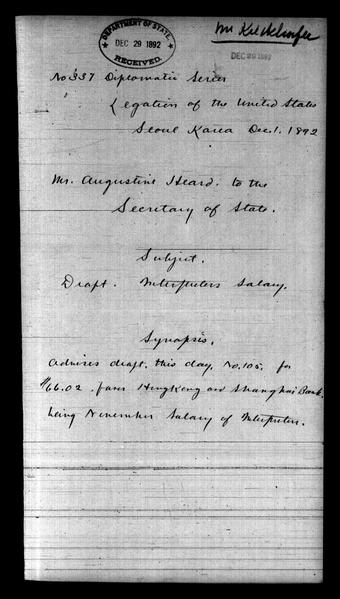 DEPARTMENT OF STATE,
DEC 29 1892
RECEIVED.
Mr
DEC 29 1892
No 337 Diplomatic Series
Legation of the United States
Seoul Korea Dec. 1. 1892
Mr. Augustine Heard. to the
Secretary of State.
Subject.
Draft. Interpreters Salary.
Synopsis.
Advises draft, this day, No. 105. for
$66.02. favor HongKong and Shanghai Bank.
being November Salary of Interpreter.